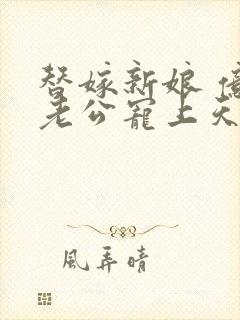 替嫁新娘 億
老公寵上天
風弄晴